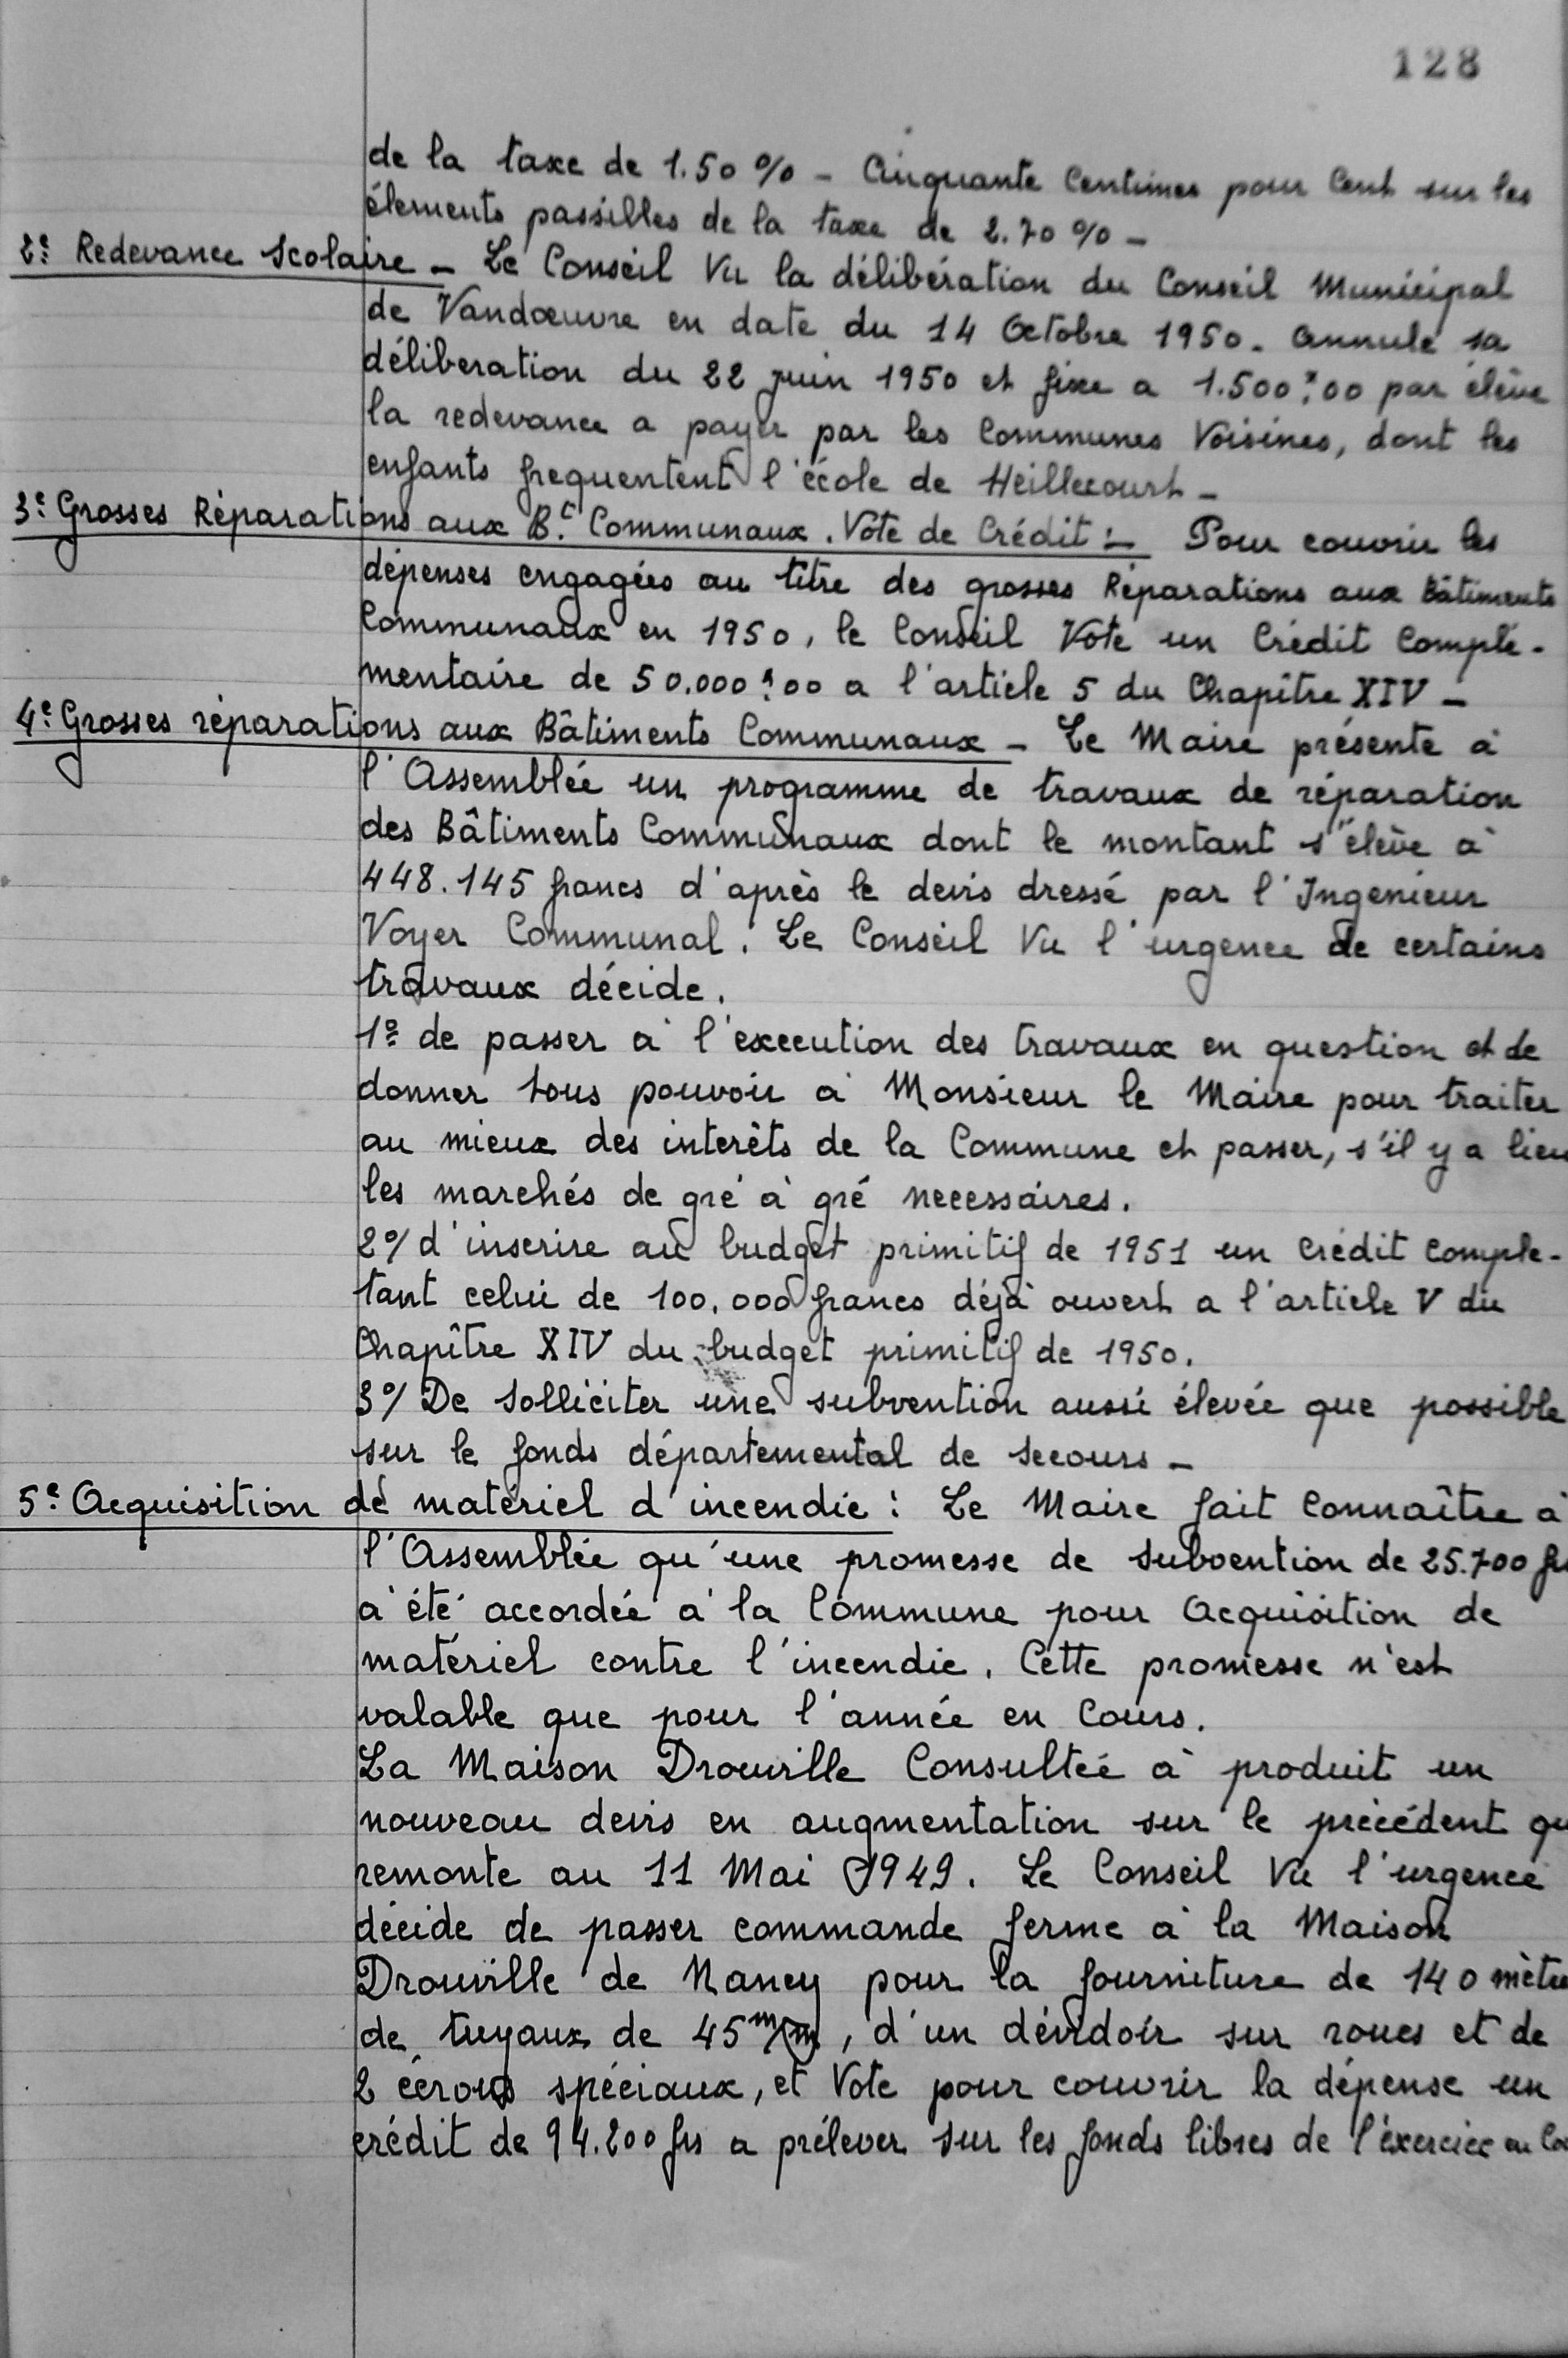 128
de la taxe de 1.50 % - Cinquante Centimes pour Cent sur les
élements passibles de la taxe de 2.70 % -
2e Redevance Scolaire - Le Conseil Vu la délibération du Conseil Municipal
de Vandœuvre en date du 14 Octobre 1950. annule sa
déliberation du 22 juin 1950 et fixe a 1.500f00 par élève
la redevance a payer par les Communes Voisines, dont les
enfants frequentent l'école de Heillecourt -
3e Grosses Réparations aux Bts Communaux. Vote de Crédit :- Pour couvrir les
dépenses engagées au titre des grosses Réparations aux Bâtiments
Communaux en 1950, le Conseil Vote un Crédit Complé-
mentaire de 50.000f00 a l'article 5 du Chapître XIV -
4e Grosses réparations aux Bâtiments Communaux - Le Maire présente à
l'Assemblée un programme de travaux de réparation
des Bâtiments Communaux dont le montant s'élève à
448.145 francs d'après le devis dressé par l'Ingénieur
Voyer Communal. Le Conseil Vu l'urgence de certains
travaux décide.
1º de passer à l'execution des travaux en question et de
donner tous pouvoir à Monsieur le Maire pour traiter
au mieux des interêts de la Commune et passer, s'il y a lieu
les marchés de gré à gré necessaires.
2º/ d'inscrire au budget primitif de 1951 un Crédit Comple-
tant celui de 100.000 francs déjà ouvert a l'article V du
Chapître XIV du budget primitif de 1950.
3º/ De Solliciter une subvention aussi élevée que possible
sur le fonds départemental de secours -
5e Acquisition de matériel d'incendie : Le Maire fait Connaître à
l'Assemblée qu'une promesse de subvention de 25.700 frs
à été accordée à la Commune pour Acquisition de
matériel contre l'incendie. Cette promesse n'est
valable que pour l'année en Cours.
La Maison Drouville Consultée à produit un
nouveau devis en augmentation sur le précédent qu
remonte au 11 Mai 1949. Le Conseil Vu l'urgence
décide de passer commande ferme à la Maison
Drouville de Nancy pour la fourniture de 140 mètres
de tuyaux de 45 m/m, d'un dévidoir sur roues et de
2 écrous spéciaux, et Vote pour couvrir la dépense un
crédit de 94.200 frs a prélever sur les fonds libres de l'éxercice en Cou